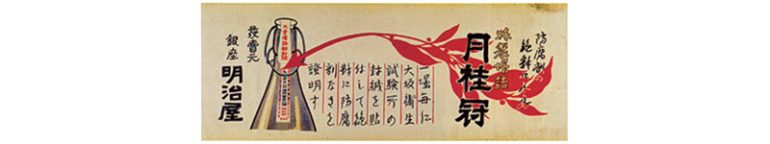 防腐剤の
月桂冠
一壜毎に
大坂衛生
試験所の
封緘を貼
付して絶
対に防腐
剤なきを
證明す
發賣元
銀座
明治屋